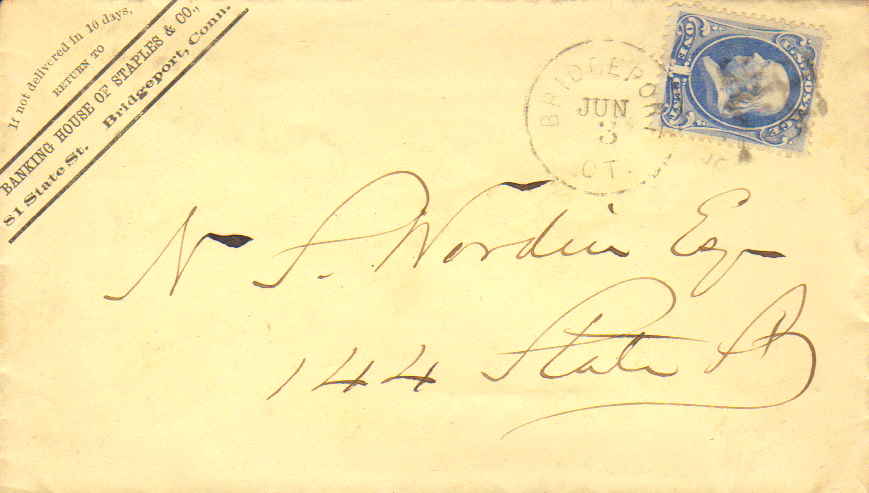 If not delivered in 10 days,
RETURN TO
BANKING HOUSE OF STAPLES & CO.,
81 State St. Bridgeport, Conn.
BRIDGEPORT
JUN
3
CT.
U.S. POSTAGE
ONE CENT
1
N S. Wordin Esq
144 State St